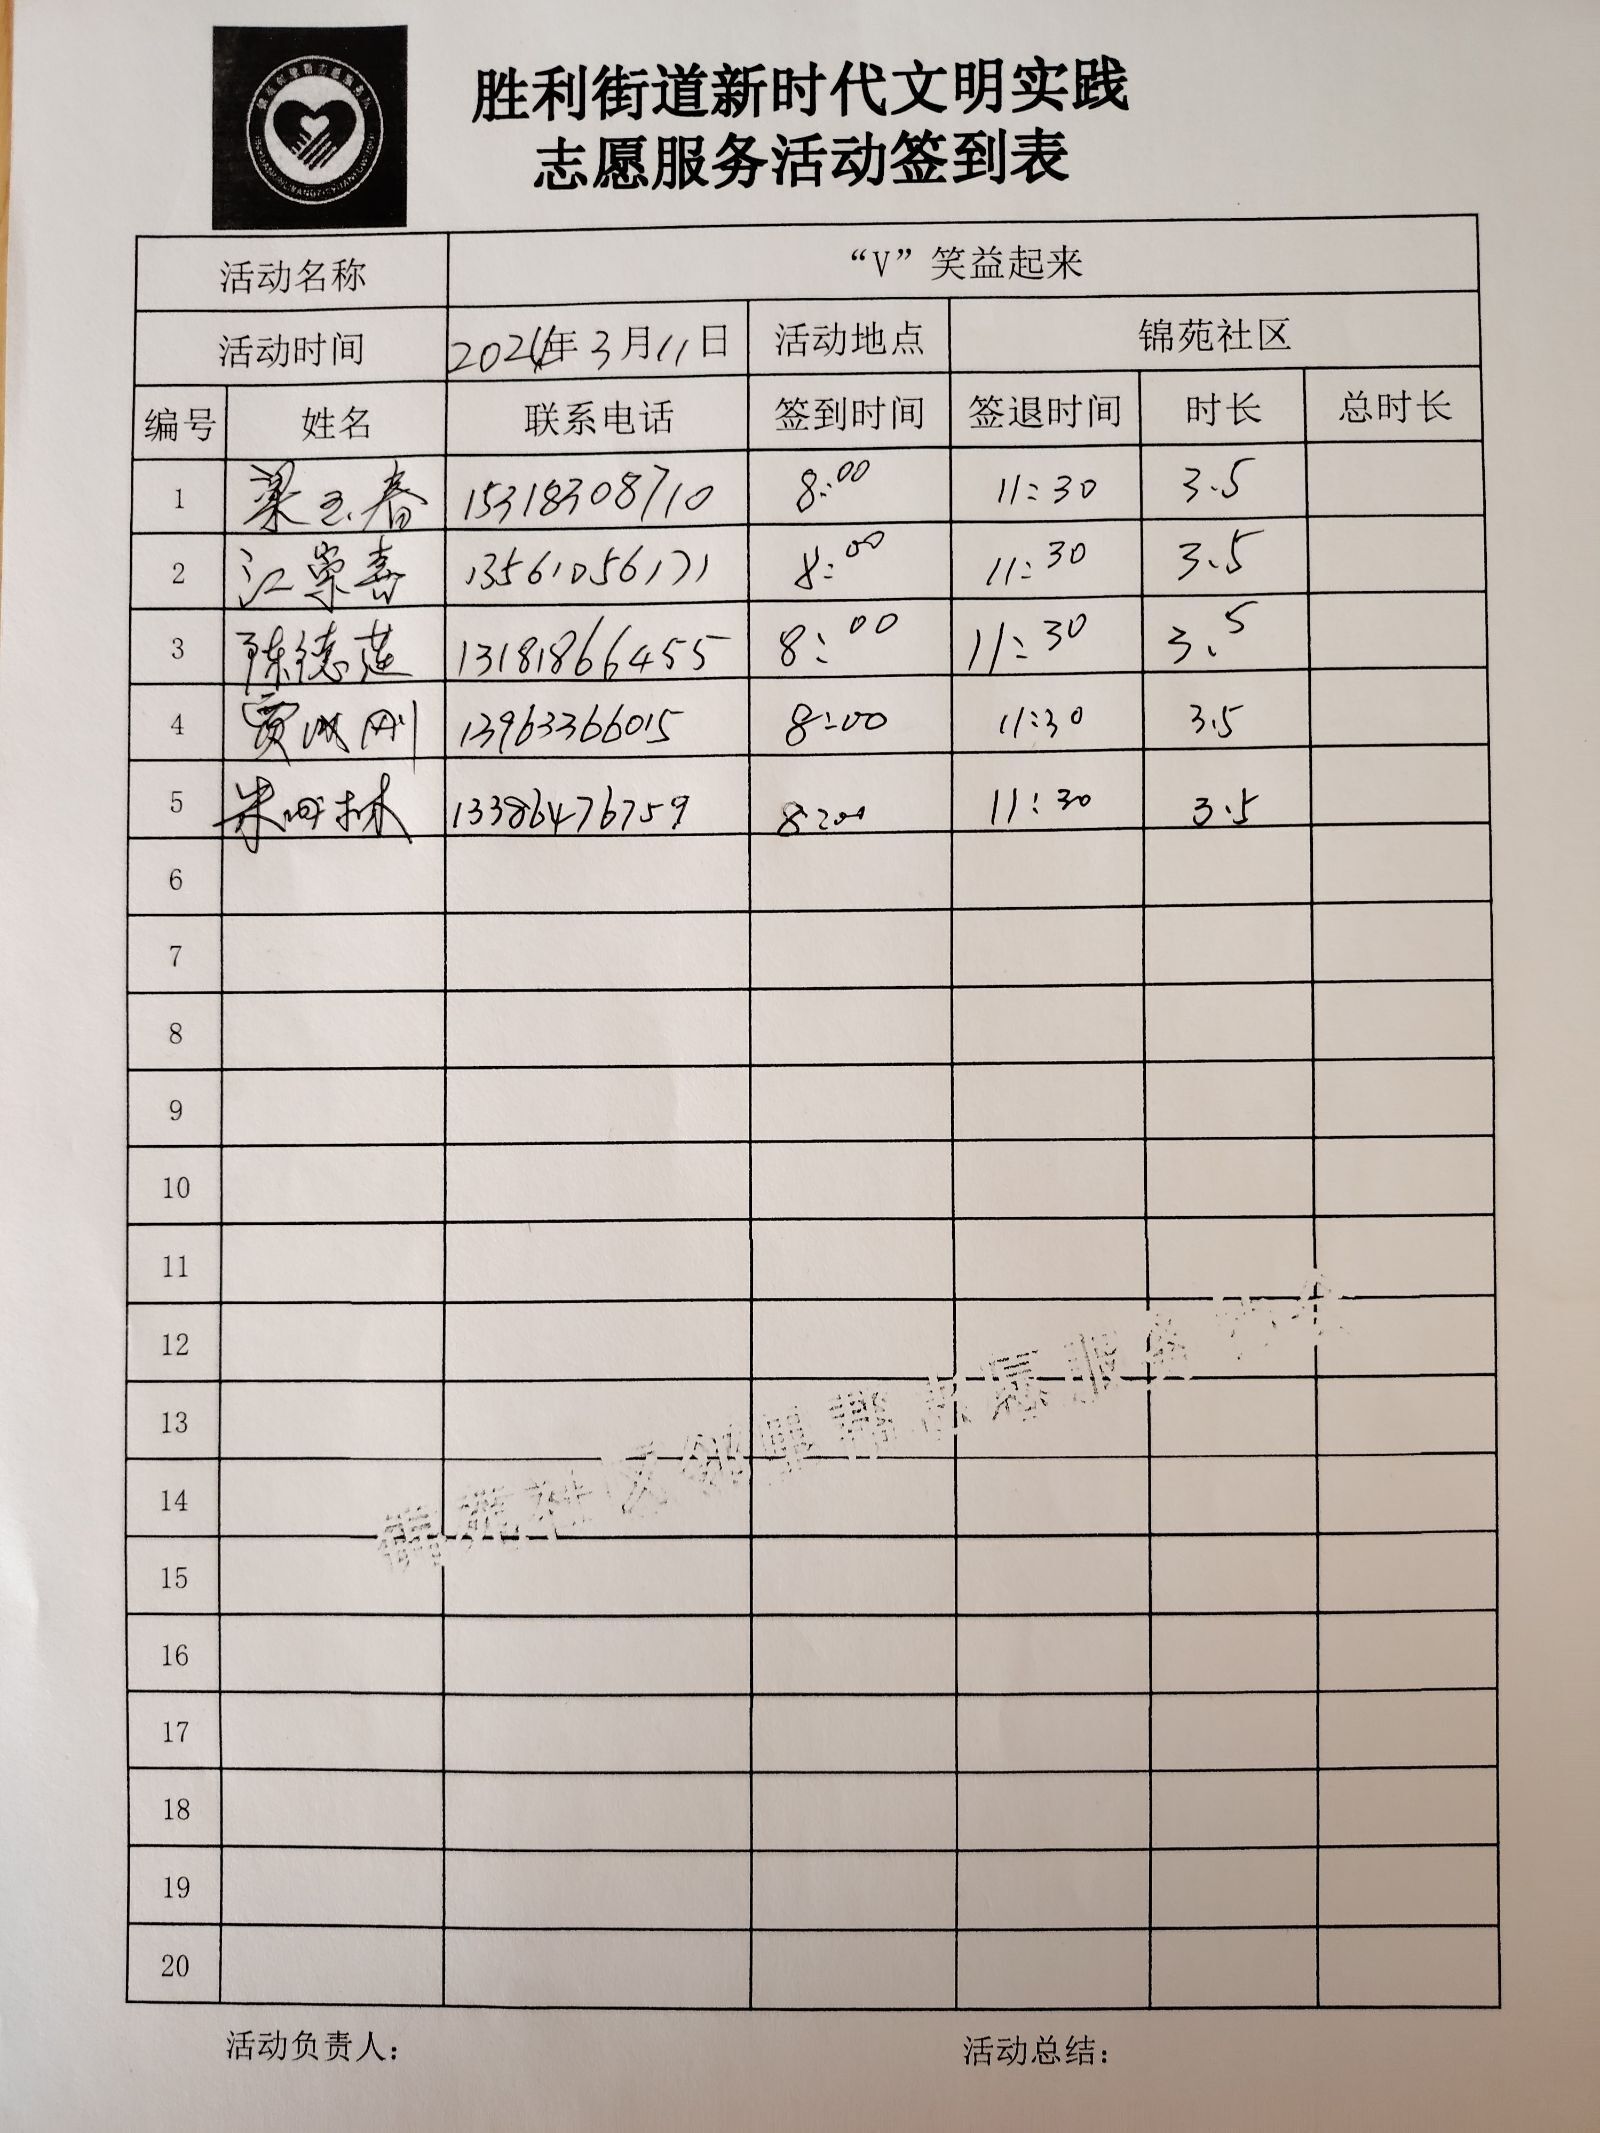 胜利街道新时代文明实践
志愿服务活动签到表
活动名称 “V”笑益起来
活动时间 2024年3月11日 活动地点 锦苑社区
编号 姓名 联系电话 签到时间 签退时间 时长 总时长
1 梁玉春 15318308710 8:00 11:30 3.5
2 江崇喜 13561056171 8:00 11:30 3.5
3 陈德莲 13181866455 8:00 11:30 3.5
4 贾洪刚 13963366015 8:00 11:30 3.5
5 林 13386476759 8:00 11:30 3.5
6
7
8
9
10
11
12
13
14
15
16
17
18
19
20
锦苑社区邻里帮志愿服务
活动负责人： 活动总结：